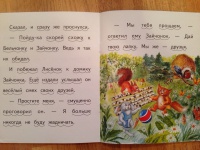 Сказал, и сразу же проснулся.
— Пойду-ка скорей схожу к
Бельчонку и Зайчонку. Ведь я так
их обидел.
И побежал Лисёнок к домику
Зайчонка. Ещё издали услышал он
весёлый смех своих друзей.
— Простите меня, — смущённо
проговорил он. — Я больше
никогда не буду
— Мы тебя прощаем, —
ответил ему Зайчонок. — Дай
твою лапку. Мы же друзья.